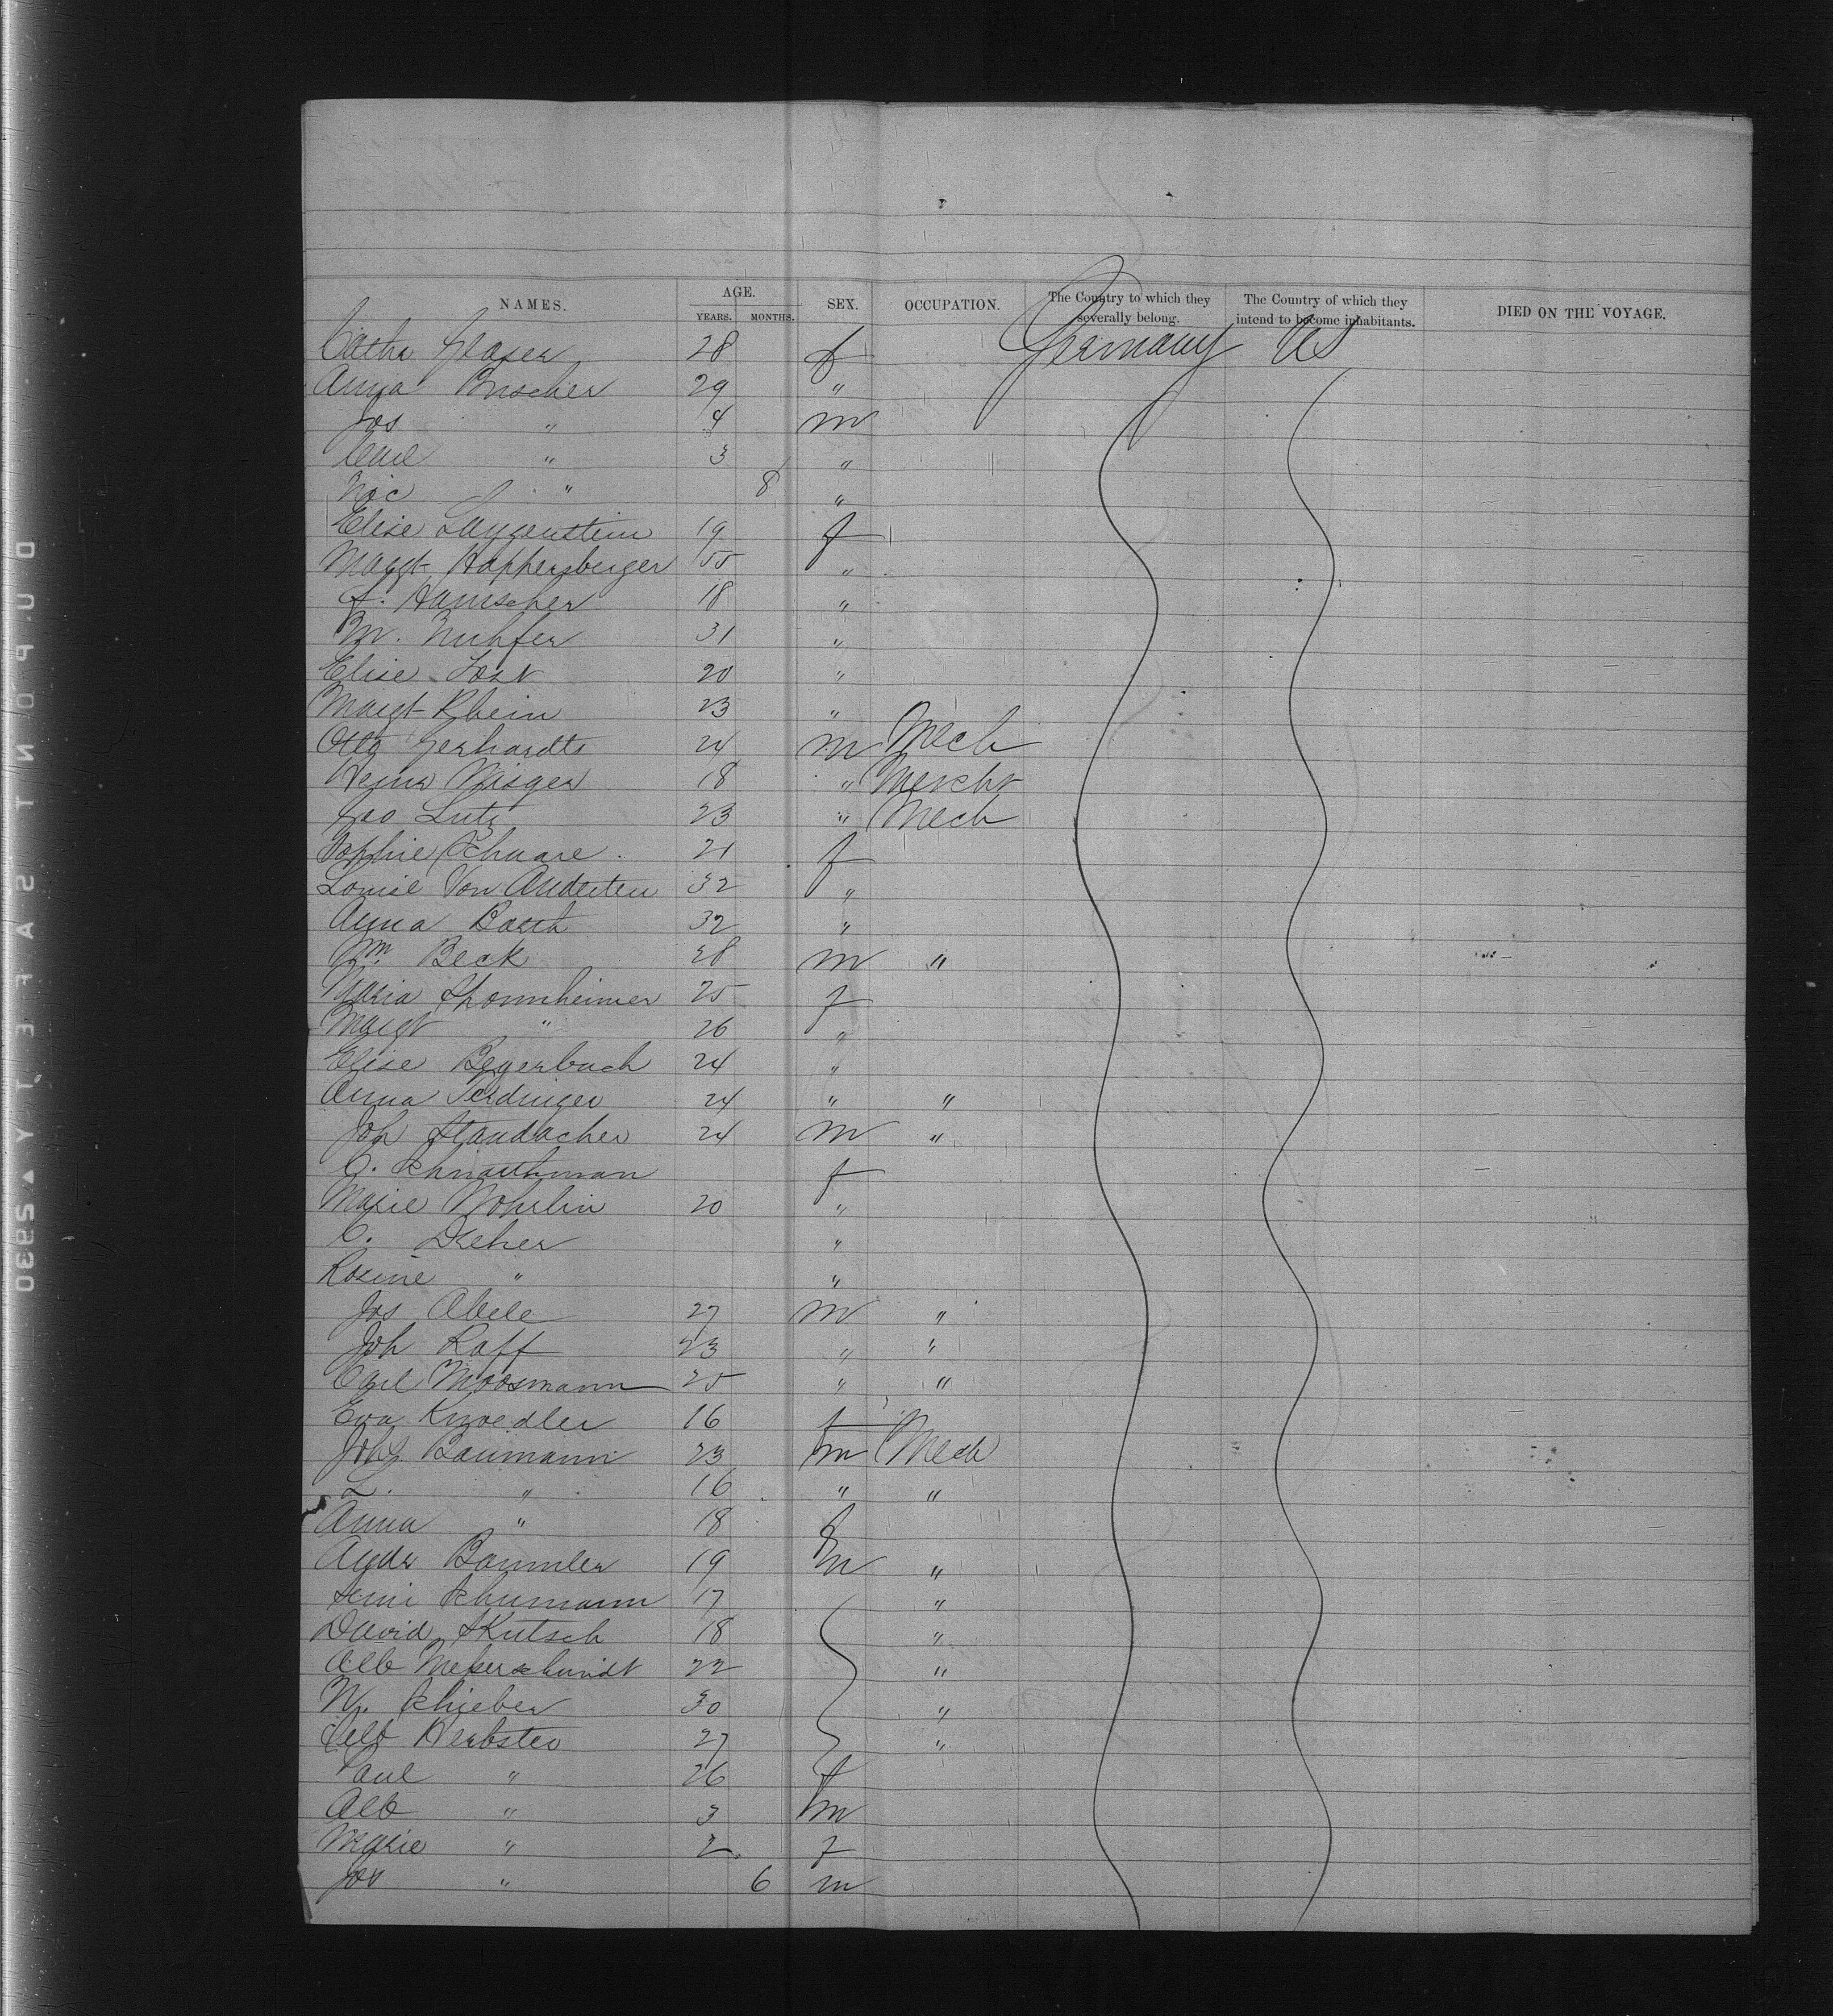 NAMES. AGE. YEARS. MONTHS. SEX. OCCUPATION. The Country to which they severally belong. The Country of which they intend to become inhabitants. DIED ON THE VOYAGE.
Cathr Glaser 28 f Germany US
Anna Buscher 29 "
Jos " 4 m
Carl " 3 "
Nic " 8 "
Elise Langenstein 19 f
Margt Happersberger 55 "
F. Hamscher 18 "
M. Nuhfer 31 "
Elise Lost 20 "
Margt Rhein 23 "
Otto Gerhardts 24 m Mech
Heinr Kisger 18 " Mercht
Geo Lutz 23 " Mech
Sophie Schuare 21 f
Louise Von Anderten 32 "
Anna Barth 32 "
Wm Beck 28 m "
Maria Sponnheimer 25 f
Margt " 26 "
Elise Begerbach 24 "
Anna Serdinger 24 " "
Joh Standacher 24 m "
C. Schnauthman f
Marie Wohrlin 20 "
C. Dreher "
Rosine " "
Jos Abele 27 m "
Joh Raff 23 " "
Carl Moosmann 25 " "
Eva Knoedler 16 f
Johs Baumann 23 m Mech
L. " 16 " "
Anna " 18 f
Andr Baumler 19 m "
Schumann 17 "
David Skutsch 18 "
Alb Messerschmidt 22 "
W. Schieber 30 "
Alb Herbster 27 "
Paul " 26 f
Alb " 3 m
Marie " 2 f
Jos " 6 m
DUPONT SAFETY